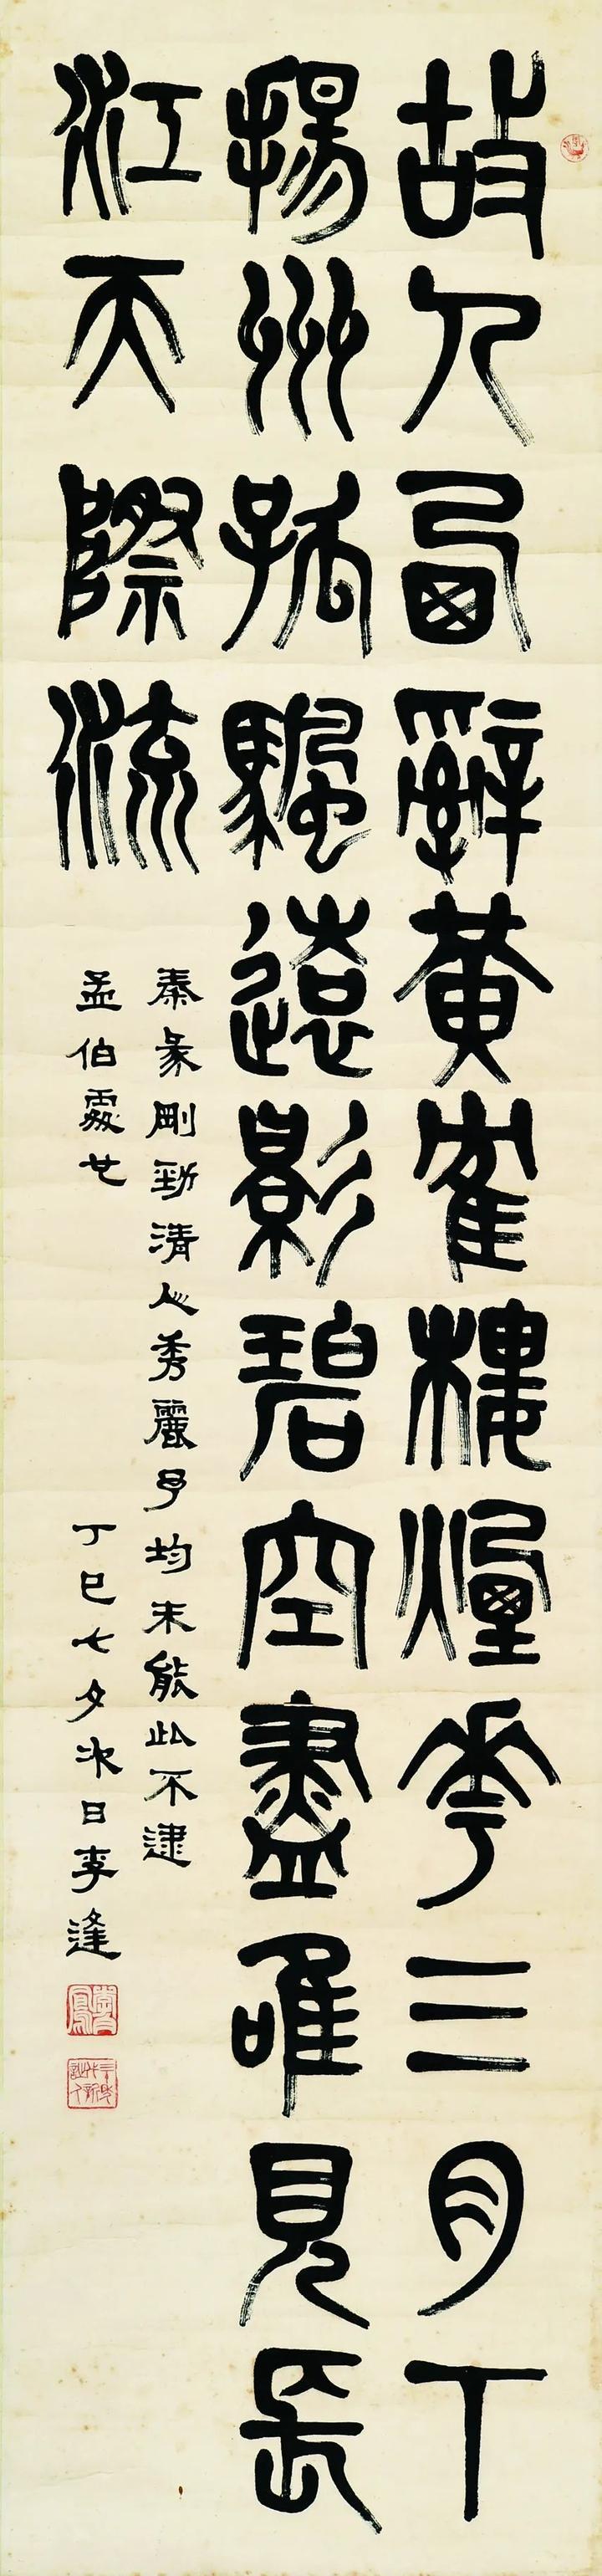 故人西辭黄雀樓煙花三月下
揚州孤颿遠影碧空盡唯見長
江天際流
秦彖剛勁清人秀麗予均未能此不逮
孟伯處也
丁巳七夕次日李逢